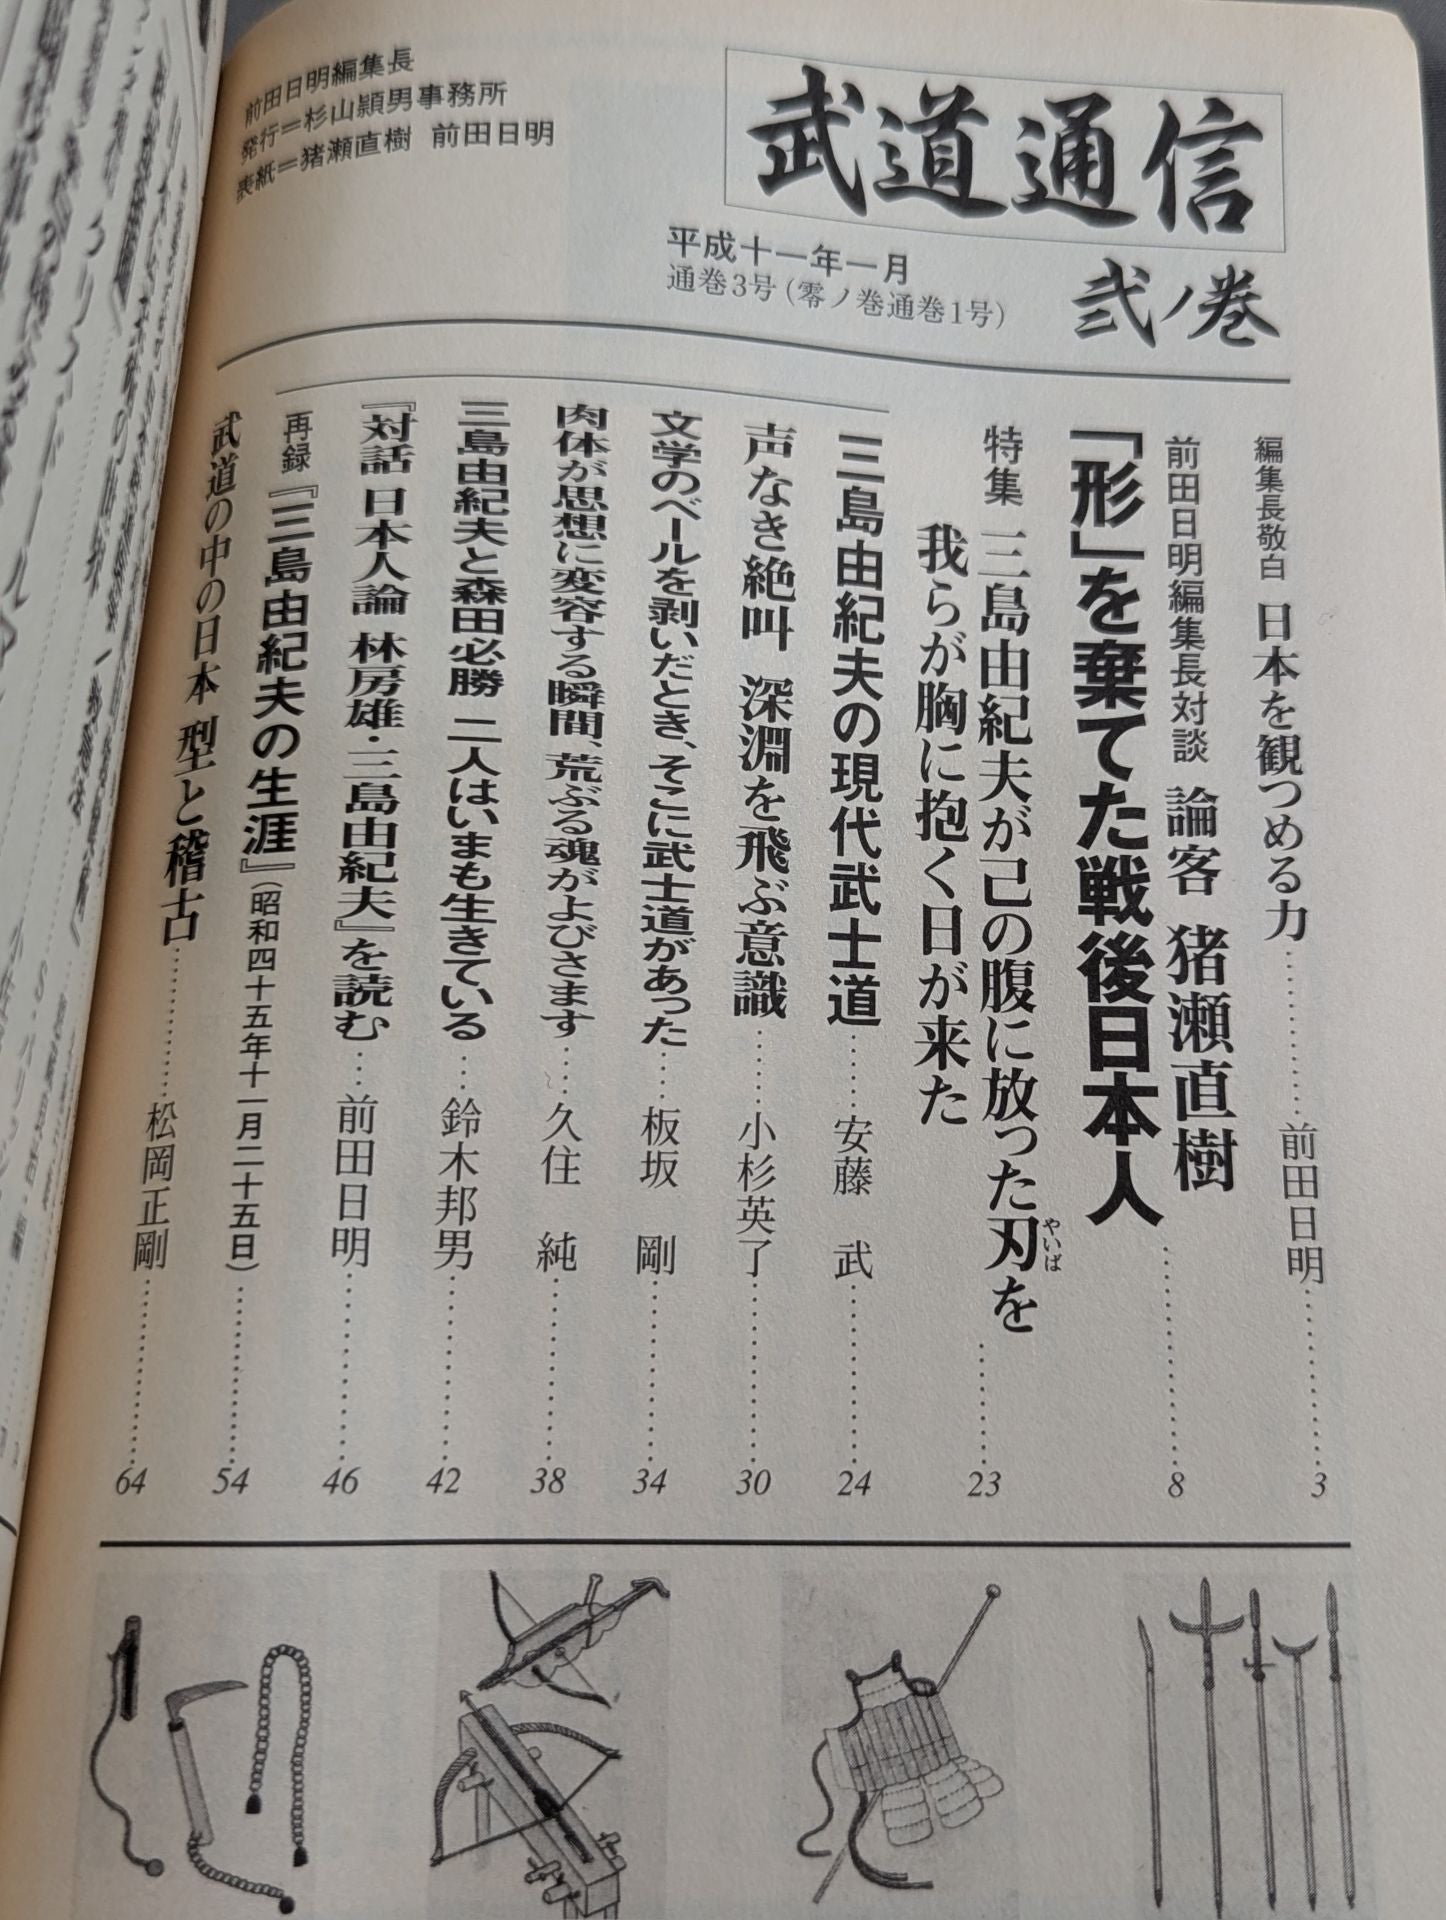 武道通信
弐ノ巻
平成十一年一月
通巻3号（零ノ巻通巻1号）
前田日明編集長
発行＝杉山頴男事務所
表紙＝猪瀬直樹 前田日明
編集長敬白 日本を観つめる力…………前田日明…………3
前田日明編集長対談 論客 猪瀬直樹
「形」を棄てた戦後日本人…………8
特集 三島由紀夫が己の腹に放った刃（やいば）を
我らが胸に抱く日が来た…………23
三島由紀夫の現代武士道……安藤 武…………24
声なき絶叫 深淵を飛ぶ意識……小杉英了…………30
文学のベールを剥いだとき、そこに武士道があった……板坂 剛…………34
肉体が思想に変容する瞬間、荒ぶる魂がよびさます……久住 純…………38
三島由紀夫と森田必勝 二人はいまも生きている……鈴木邦男…………42
『対話 日本人論 林房雄・三島由紀夫』を読む……前田日明…………46
再録『三島由紀夫の生涯』（昭和四十五年十一月二十五日）…………54
武道の中の日本 型と稽古…………松岡正剛…………64